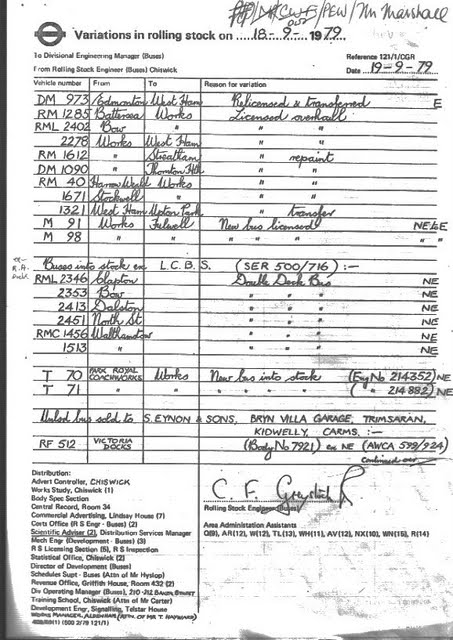 Mr Marshall
Variations in rolling stock on 18-9-1979
To Divisional Engineering Manager (Buses)
Reference 121/1/CGR
From Rolling Stock Engineer (Buses) Chiswick
Date 19-9-79
Vehicle number From To Reason for variation
DM 973 Edmonton West Ham Relicensed & transferred E
RM 1285 Battersea Works Licensed overhaul
RML 2402 Bow " " "
2278 Works West Ham " "
RM 1612 " Streatham " repaint
DM 1090 " Thornton Hth " "
RM 40 Harrow Weald Works " "
1671 Stockwell " " "
1321 West Ham Upton Park " transfer
M 91 Works Fulwell New bus licensed NE LE
M 98 " " " " " " "
Buses into stock ex L.C.B.S. (SER 500/716) :-
RML 2346 Clapton Double Deck Bus NE
2353 Bow " " " NE
2413 Dalston " " " NE
2451 North St " " " NE
RMC 1456 Walthamstow " " " NE
1513 " " " " NE
T 70 PARK ROYAL COACHWORKS Works New bus into stock (Eng No 214352) NE
T 71 " " " " " " ( " " 214882) NE
Unlsd bus sold to S. EYNON & SONS, BRYN VILLA GARAGE, TRIMSARAN,
KIDWELLY, CARMS. :-
RF 512 VICTORIA DOCKS (Body No 7921) ex NE (AWCA 599/924)
continued over
Distribution:
Advert Controller, CHISWICK
Works Study, Chiswick (1)
Body Spec Section
Central Record, Room 34
Commercial Advertising, Lindsay House (7)
Costs Office (R S Engr - Buses) (2)
Scientific Adviser (2), Distribution Services Manager
Mech Engr (Development - Buses) (3)
R S Licensing Section (5), R S Inspection
Statistical Office, Chiswick (2)
Director of Development (Buses)
Schedules Supt - Buses (Attn of Mr Hyslop)
Revenue Office, Griffith House, Room 432 (2)
Div Operating Manager (Buses), 210-212 BAKER STREET
Training School, Chiswick (Attn of Mr Carter)
Development Engr, Signalling, Telstar House
WORKS MANAGER, ALDENHAM (ATTN. OF MR T HAYWARD)
Rolling Stock Engineer (Buses)
Area Administration Assistants
Q(9), AR(12), W(12), TL(13), WH(11), AV(12), NX(10), WN(15), R(14)